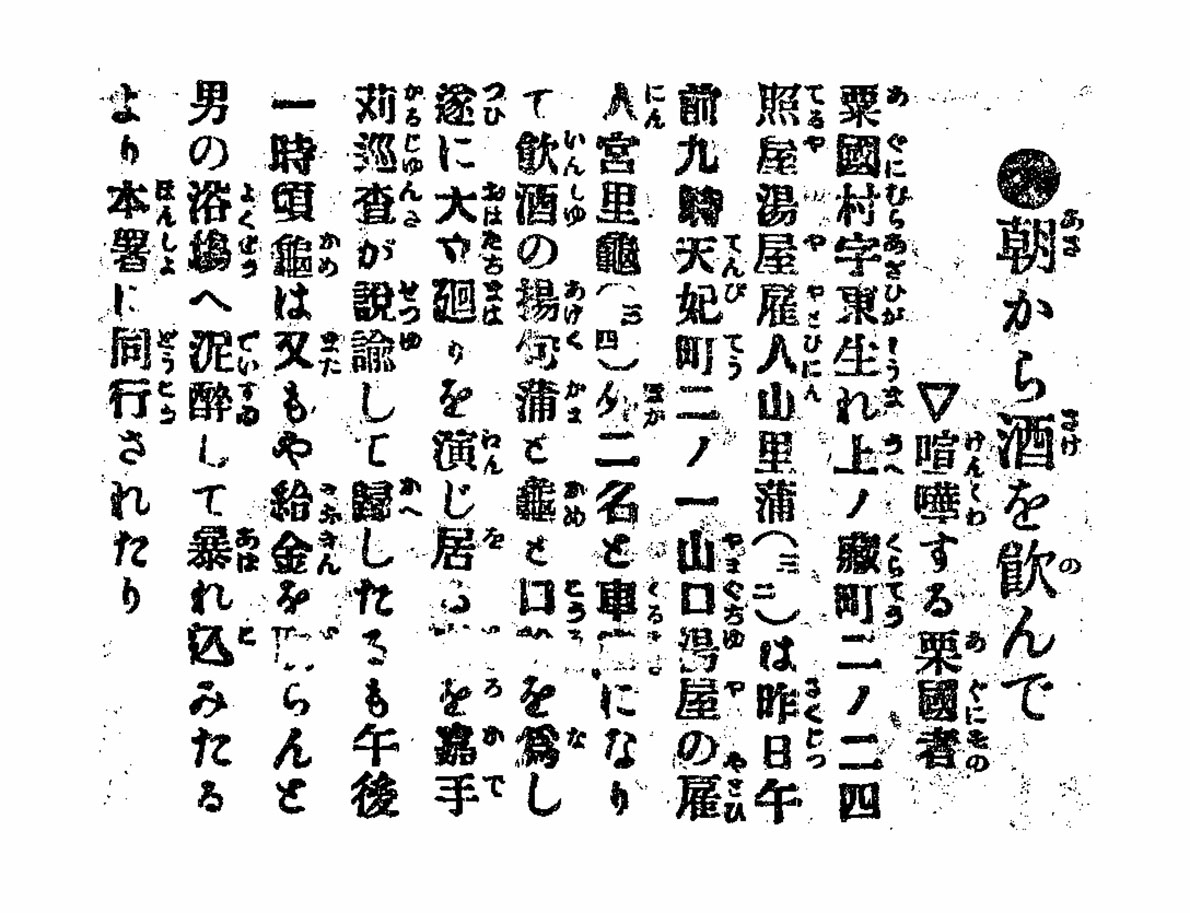 ●朝から酒を飮んで
▽喧嘩する粟國者
粟國村字東生れ上ノ藏町二ノ二四
照屋湯屋雇人山里蒲(二三)は昨日午
前九時天妃町二ノ一山口湯屋の雇
人宮里龜(三四)外二名と車座になり
て飮酒の揚句蒲と龜と口論を爲し
遂に大立廻りを演じ居る を嘉手
苅巡査が說諭して歸したるも午後
一時頃龜は又もや給金を らんと
男の浴塲へ泥醉して暴れ込みたる
より本署に同行されたり